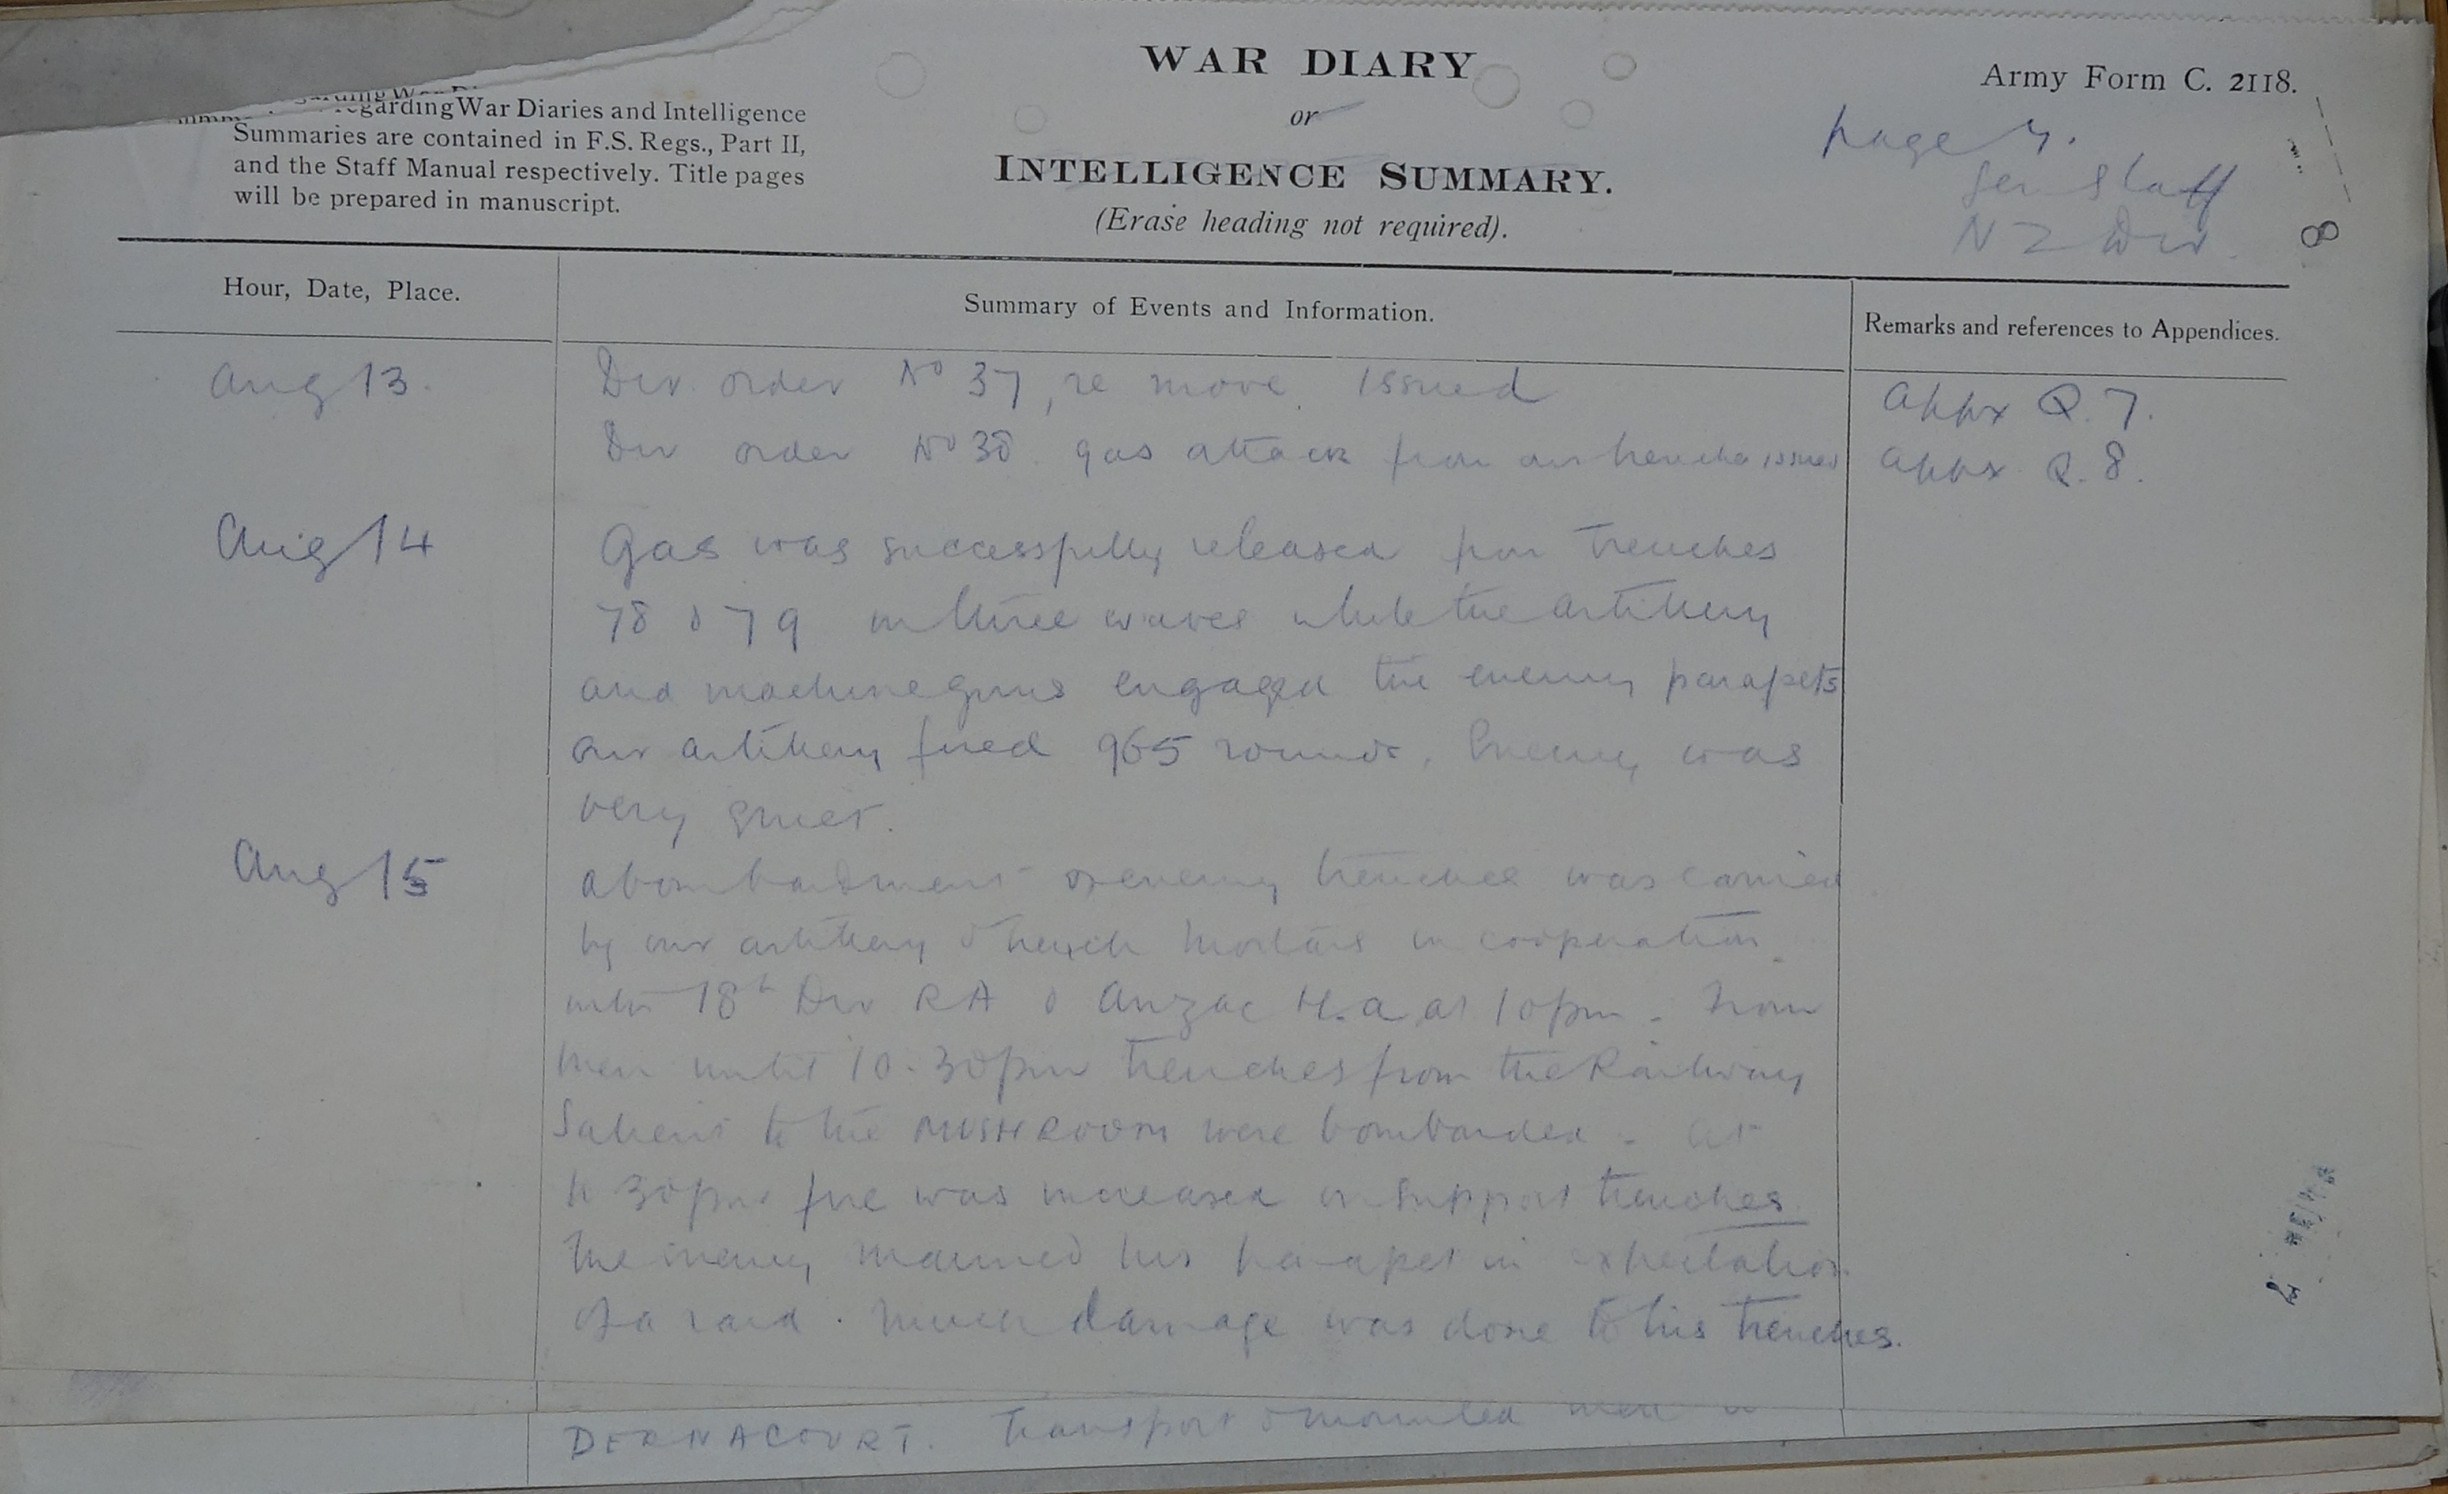 WAR DIARY
or
INTELLIGENCE SUMMARY.
(Erase heading not required).
Army Form C. 2118.
regarding War Diaries and Intelligence
Summaries are contained in F.S. Regs., Part II,
and the Staff Manual respectively. Title pages
will be prepared in manuscript.
page
Gen Staff
N Z Div.
8
Hour, Date, Place.
Summary of Events and Information.
Remarks and references to Appendices.
Aug 13.
Div. order No 37, re move. issued
Appx Q. 7.
Div order No 38. gas attack from our trenches issued
Appx Q. 8.
Aug 14
Gas was successfully released from trenches
78 & 79 in three waves while the artillery
and machine guns engaged the enemy parapets
our artillery fired 965 rounds. Enemy was
very quiet.
Aug 15
A bombardment of enemy trenches was carried
by our artillery & trench mortars in cooperation
with 18th Div RA & Anzac H.A at 10 pm. From
then until 10.30 pm trenches from the Railway
Salient to the MUSHROOM were bombarded. At
30 pm fire was increased on support trenches
The enemy manned his parapet in expectation
of a raid. Much damage was done to his trenches.
DERNACOURT. Transport & mounted men